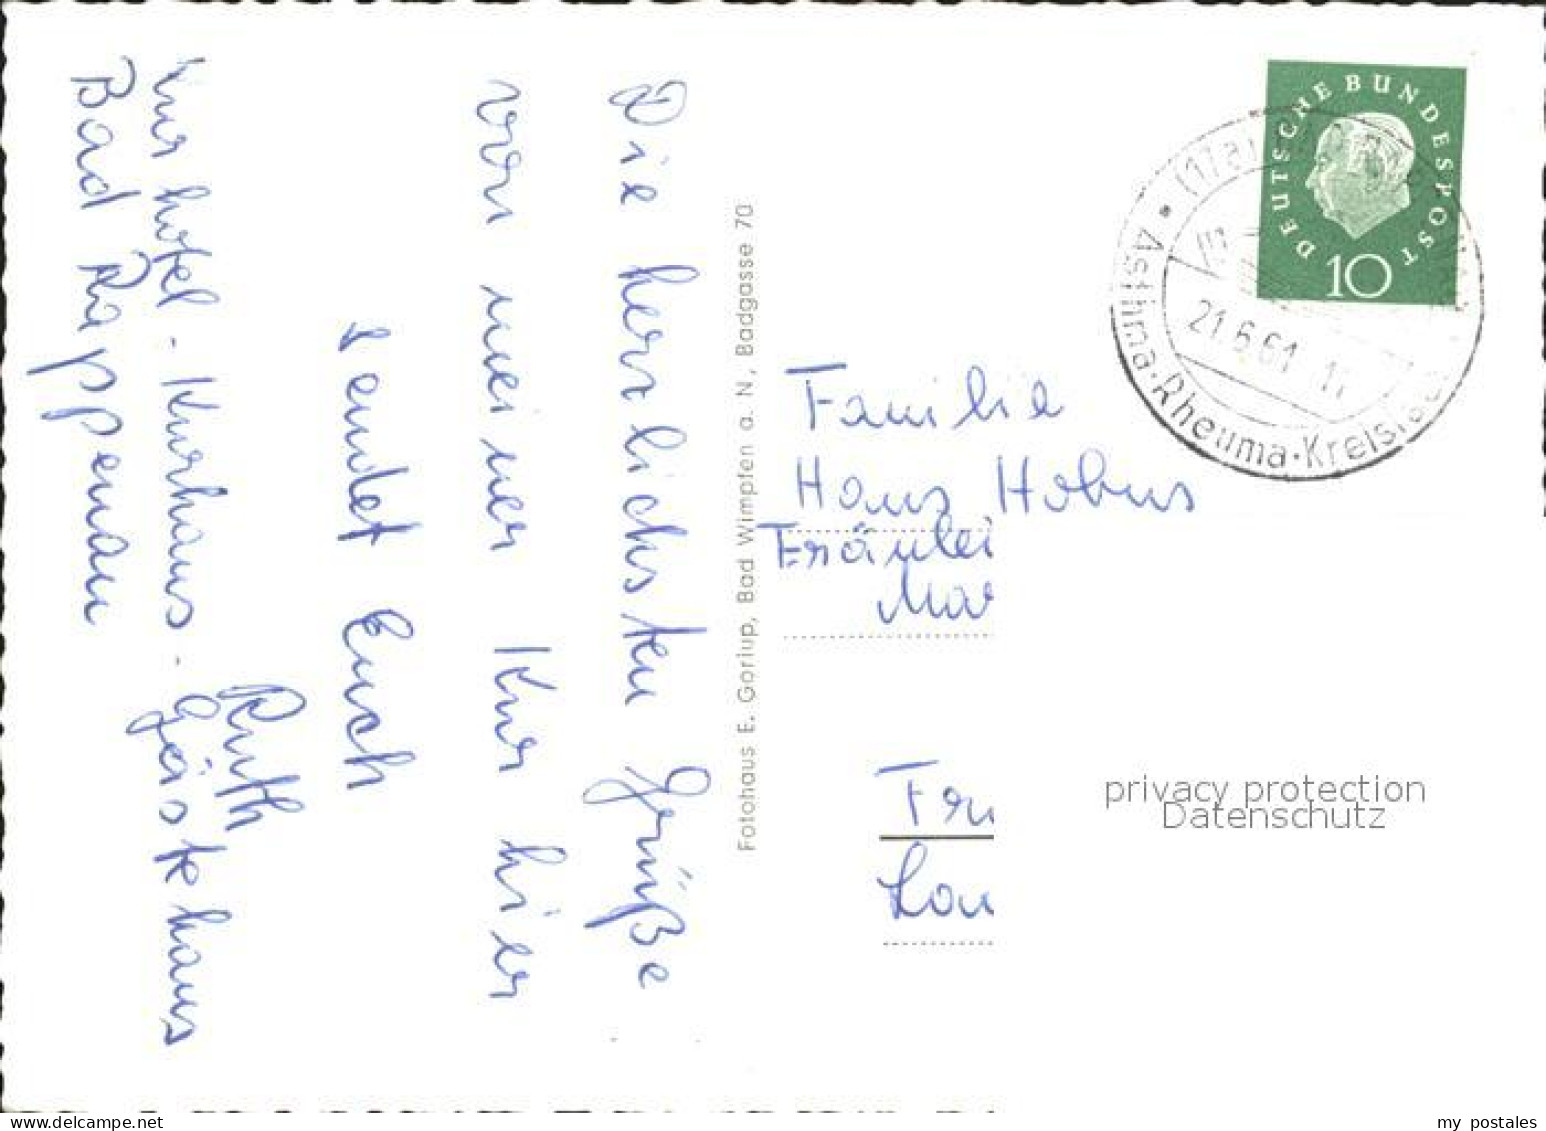 Die herzlichsten Grüße
von meiner Kur hier
sendet Euch
Ruth
Kurhotel - Kurhaus - Gästehaus
Bad Rappenau
Fotohaus E. Goriup, Bad Wimpfen a. N., Badgasse 70
DEUTSCHE BUNDESPOST
10
21.6.61
Asthma·Rheuma·Kreislau
Familie
Hans Hobus
Fräulei
Mar
privacy protection
Datenschutz
delcampe.net
my postales